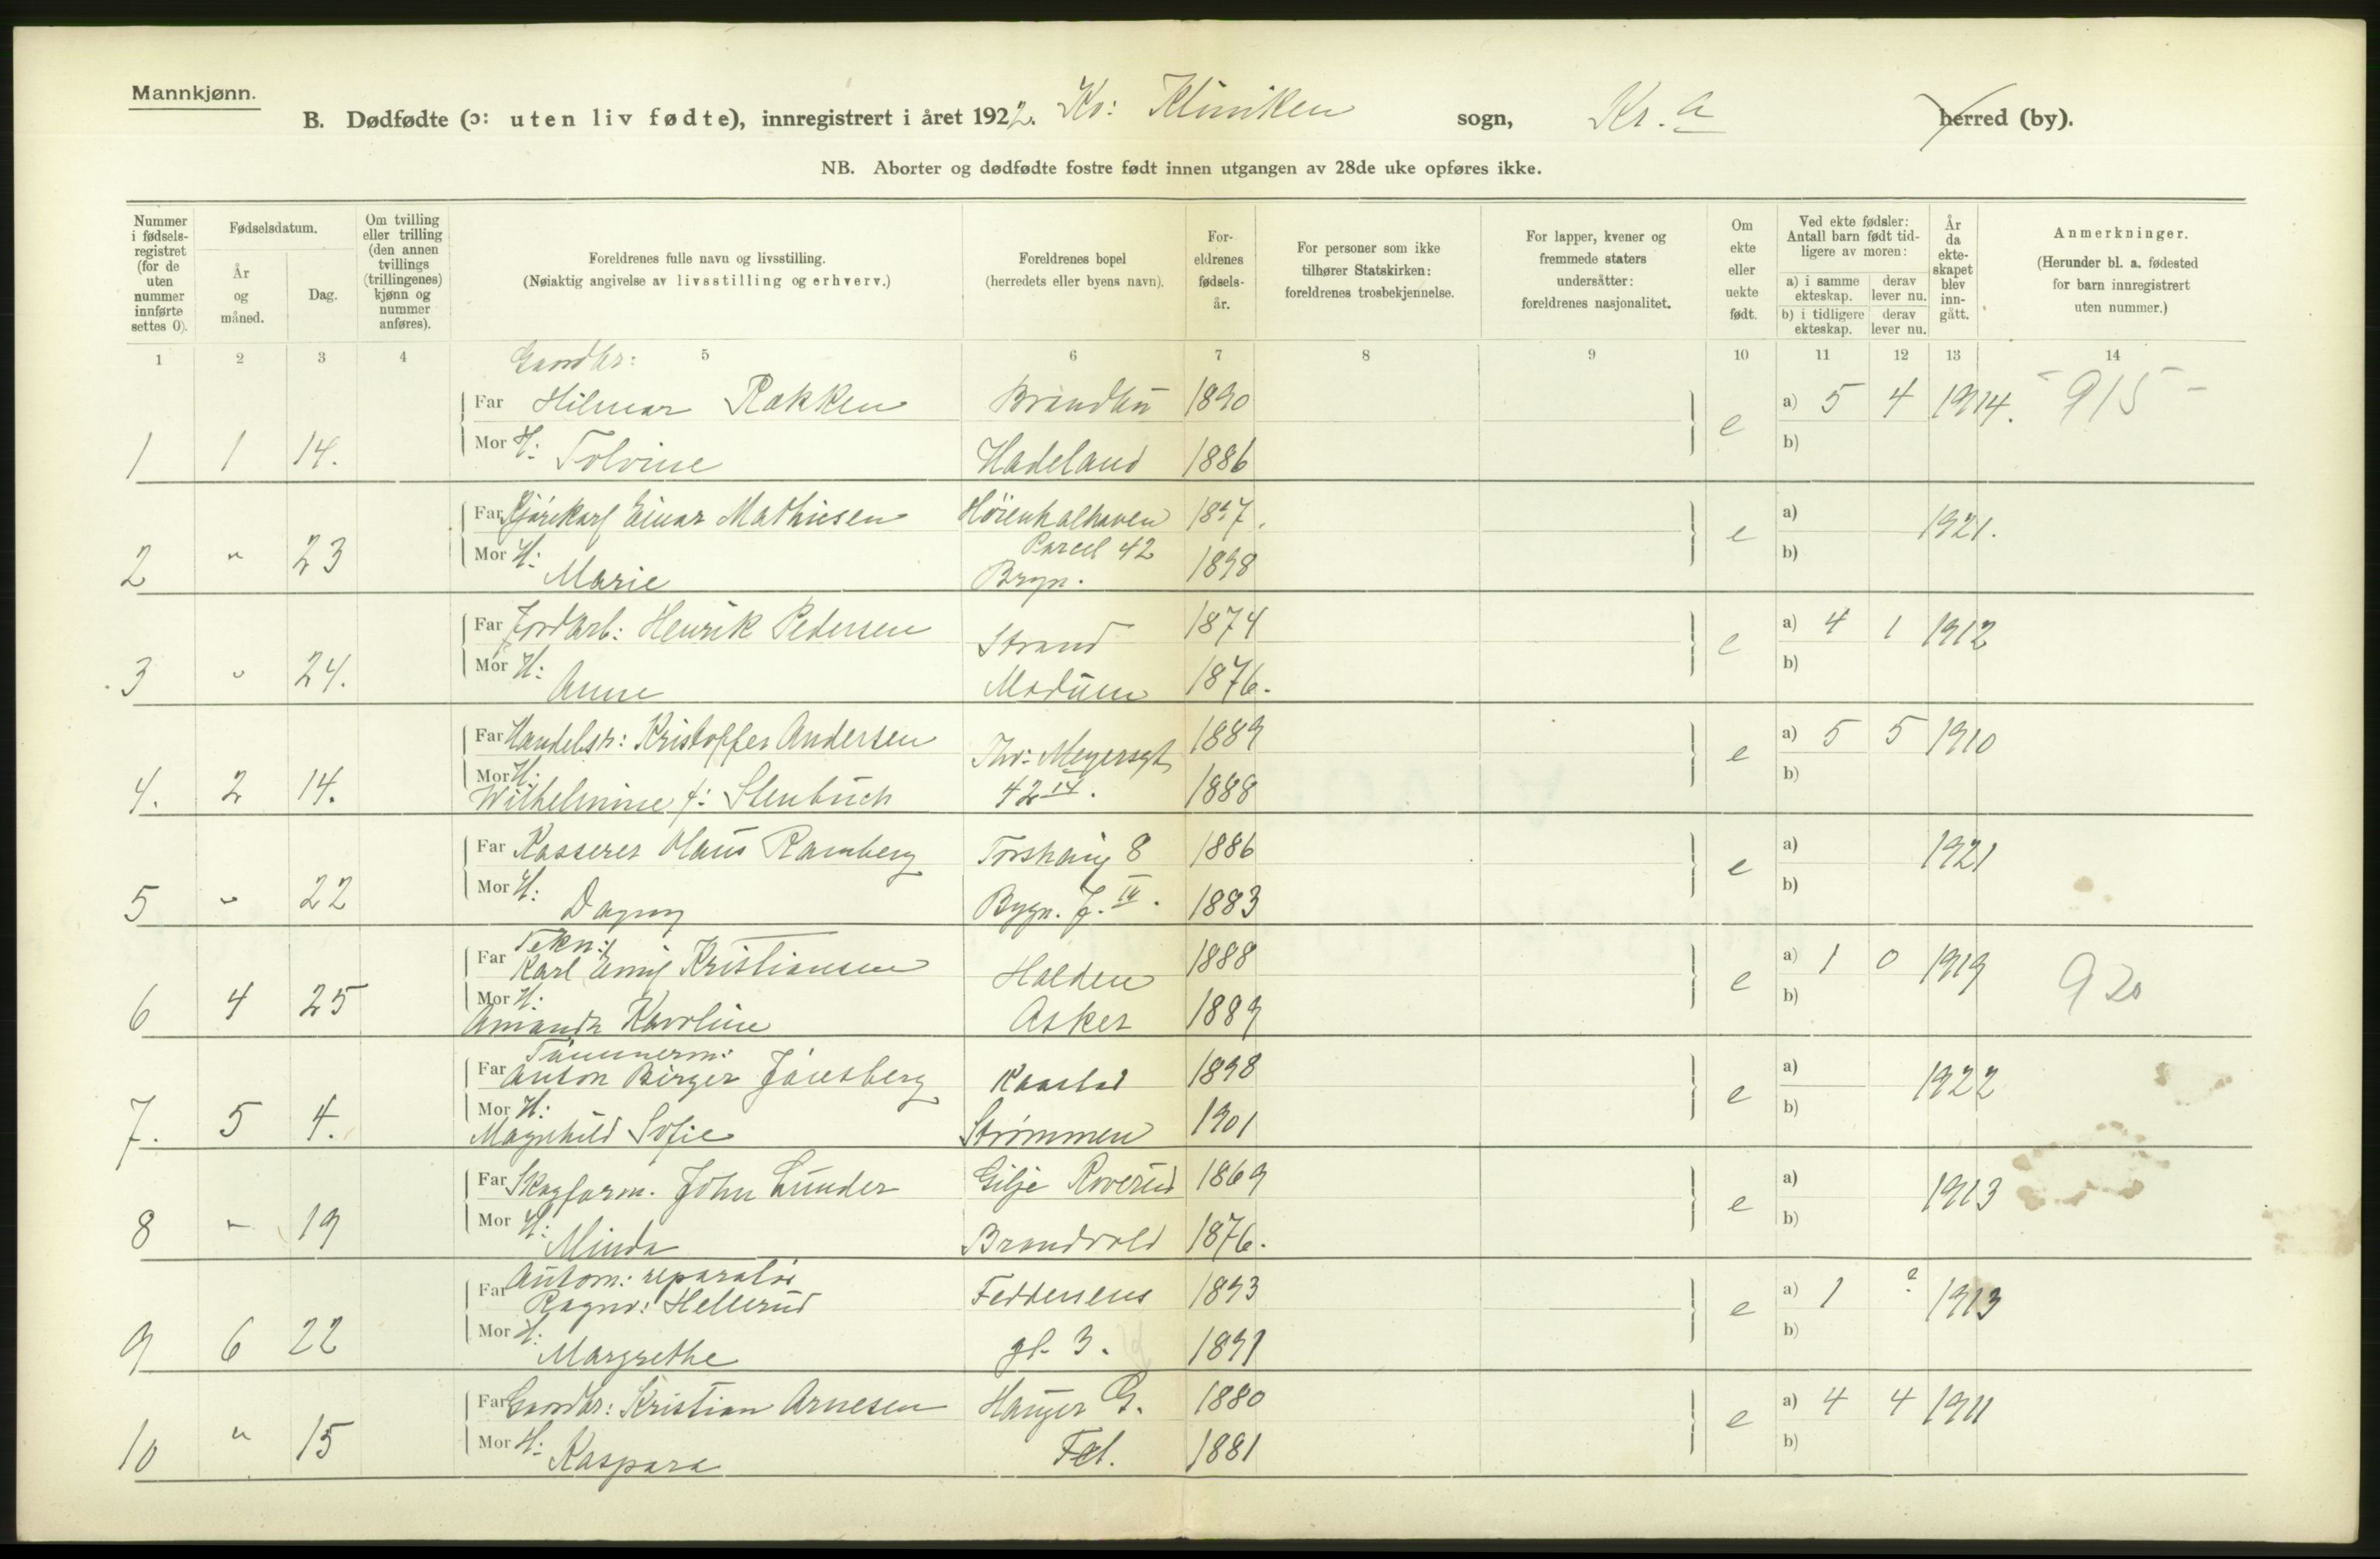 Mannkjønn.
B. Dødfødte (ɔ: uten liv fødte), innregistrert i året 1922. Kv: Kliniken sogn, Kr.a herred (by).
NB. Aborter og dødfødte fostre født innen utgangen av 28de uke opføres ikke.
Nummer i fødsels-registret (for de uten nummer innførte settes 0).
Fødselsdatum.
År og måned.
Dag.
Om tvilling eller trilling (den annen tvillings (trillingenes) kjønn og nummer anføres).
Foreldrenes fulle navn og livsstilling.
(Nøiaktig angivelse av livsstilling og erhverv.)
Foreldrenes bopel
(herredets eller byens navn).
For-eldrenes fødsels-år.
For personer som ikke tilhører Statskirken: foreldrenes trosbekjennelse.
For lapper, kvener og fremmede staters undersåtter: foreldrenes nasjonalitet.
Om ekte eller uekte født.
Ved ekte fødsler: Antall barn født tid-ligere av moren:
a) i samme ekteskap. derav lever nu.
b) i tidligere ekteskap. derav lever nu.
År da ekte-skapet blev inn-gått.
Anmerkninger.
(Herunder bl. a. fødested for barn innregistrert uten nummer.)
1 2 3 4 5 6 7 8 9 10 11 12 13 14
Gaardbr:
Far Hilmar Rækken Brandbu 1890 e a) 5 4 1914. - 915 -
1 1 14. Mor H: Tolvine Hadeland 1886 b)
Far Einar Mathiesen 1897. e a) 1921.
Parcel 42
2 " 23 Mor H: Marie Bryn. 1898 b)
Far Jordarb: Henrik Pedersen Strand 1874 e a) 4 1 1912
3 " 24. Mor H: Anne Modum 1876. b)
Far Handelsr: Kristoffer Andersen Thv: Meyersgt 1889 e a) 5 5 1910
4. 2 14. Mor H: Wilhelmine f: Stenbuch 42 IV. 1888 b)
Far Kasserer Olaus Ramberg Torshaug 8 1886 e a) 1921
5 " 22 Mor H: Dagny Bygn. J. IV. 1883 b)
Tekn:
Far Karl Emil Kristiansen Halden 1888 e a) 1 0 1919 920
6 4 25 Mor H: Amanda Karoline Asker 1889 b)
Tømmerm:
Far Anton Birger 1898 e a) 1922
7. 5 4. Mor H: Magnhild Sofie Strømmen 1901 b)
Far Skogform. John Lunder Roverud 1869 e a) 1913
8 " 19 Mor H: Minda Brandvold 1876. b)
Autom: reparatør
Far Ragnv: Hellerud Feddersens 1893 e a) 1 ? 1913
9 6 22 Mor H: Margrethe gt. 3. 1891 b)
Far Gaardbr: Kristian Arnesen Hauger G. 1880 e a) 4 4 1911
10 " 15 Mor H: Kaspara Fet. 1881 b)